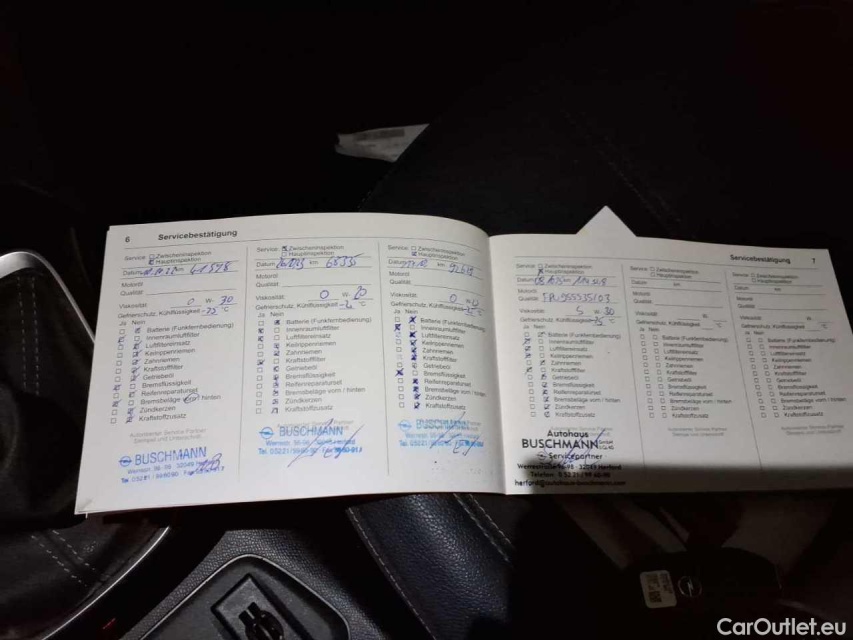 6 Servicebestätigung
Service: Zwischeninspektion
Hauptinspektion
Datum km
Motoröl
Qualität
Viskosität 0 W- 30
Gefrierschutz, Kühlflüssigkeit °C
Ja Nein
Batterie (Funkfernbedienung)
Innenraumluftfilter
Luftfiltereinsatz
Keilrippenriemen
Zahnriemen
Kraftstofffilter
Getriebeöl
Bremsflüssigkeit
Reifenreparaturset
Bremsbeläge vorn / hinten
Zündkerzen
Kraftstoffzusatz
Autorisierter Service Partner
Stempel und Unterschrift
BUSCHMANN
Service: Zwischeninspektion
Hauptinspektion
Datum km 68335
Motoröl
Qualität
Viskosität 0 W- 20
Gefrierschutz, Kühlflüssigkeit °C
Ja Nein
Batterie (Funkfernbedienung)
Innenraumluftfilter
Luftfiltereinsatz
Keilrippenriemen
Zahnriemen
Kraftstofffilter
Getriebeöl
Bremsflüssigkeit
Reifenreparaturset
Bremsbeläge vorn / hinten
Zündkerzen
Kraftstoffzusatz
BUSCHMANN
Service: Zwischeninspektion
Hauptinspektion
Datum km
Motoröl
Qualität
Viskosität 0
Gefrierschutz, Kühlflüssigkeit °C
Ja Nein
Batterie (Funkfernbedienung)
Innenraumluftfilter
Luftfiltereinsatz
Keilrippenriemen
Zahnriemen
Kraftstofffilter
Getriebeöl
Bremsflüssigkeit
Reifenreparaturset
Bremsbeläge vorn / hinten
Zündkerzen
Kraftstoffzusatz
BUSCHMANN
Servicebestätigung 7
Service: Zwischeninspektion
Hauptinspektion
Datum
Motoröl
Qualität
Viskosität 5 W- 30
Gefrierschutz, Kühlflüssigkeit °C
Ja Nein
Batterie (Funkfernbedienung)
Innenraumluftfilter
Luftfiltereinsatz
Keilrippenriemen
Zahnriemen
Kraftstofffilter
Getriebeöl
Bremsflüssigkeit
Reifenreparaturset
Bremsbeläge vorn / hinten
Zündkerzen
Kraftstoffzusatz
Autohaus
BUSCHMANN
Servicepartner
Werrestraße 96-98 · 32049 Herford
Telefon: 0 52 21 / 99 60-90
herford@autohaus-buschmann.com
Service: Zwischeninspektion
Hauptinspektion
Datum km
Motoröl
Qualität
Viskosität W-
Gefrierschutz, Kühlflüssigkeit °C
Ja Nein
Batterie (Funkfernbedienung)
Innenraumluftfilter
Luftfiltereinsatz
Keilrippenriemen
Zahnriemen
Kraftstofffilter
Getriebeöl
Bremsflüssigkeit
Reifenreparaturset
Bremsbeläge vorn / hinten
Zündkerzen
Kraftstoffzusatz
Autorisierter Service Partner
Stempel und Unterschrift
Service: Zwischeninspektion
Hauptinspektion
Datum km
Motoröl
Qualität
Viskosität W-
Gefrierschutz, Kühlflüssigkeit °C
Ja Nein
Batterie (Funkfernbedienung)
Innenraumluftfilter
Luftfiltereinsatz
Keilrippenriemen
Zahnriemen
Kraftstofffilter
Getriebeöl
Bremsflüssigkeit
Reifenreparaturset
Bremsbeläge vorn / hinten
Zündkerzen
Kraftstoffzusatz
Autorisierter Service Partner
Stempel und Unterschrift
CarOutlet.eu